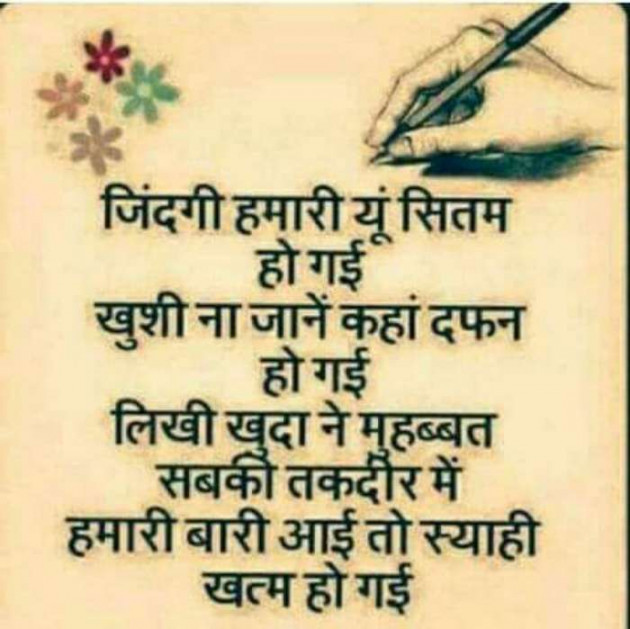 जिंदगी हमारी यूं सितम
हो गई
खुशी ना जानें कहां दफन
हो गई
लिखी खुदा ने मुहब्बत
सबकी तकदीर में
हमारी बारी आई तो स्याही
खत्म हो गई